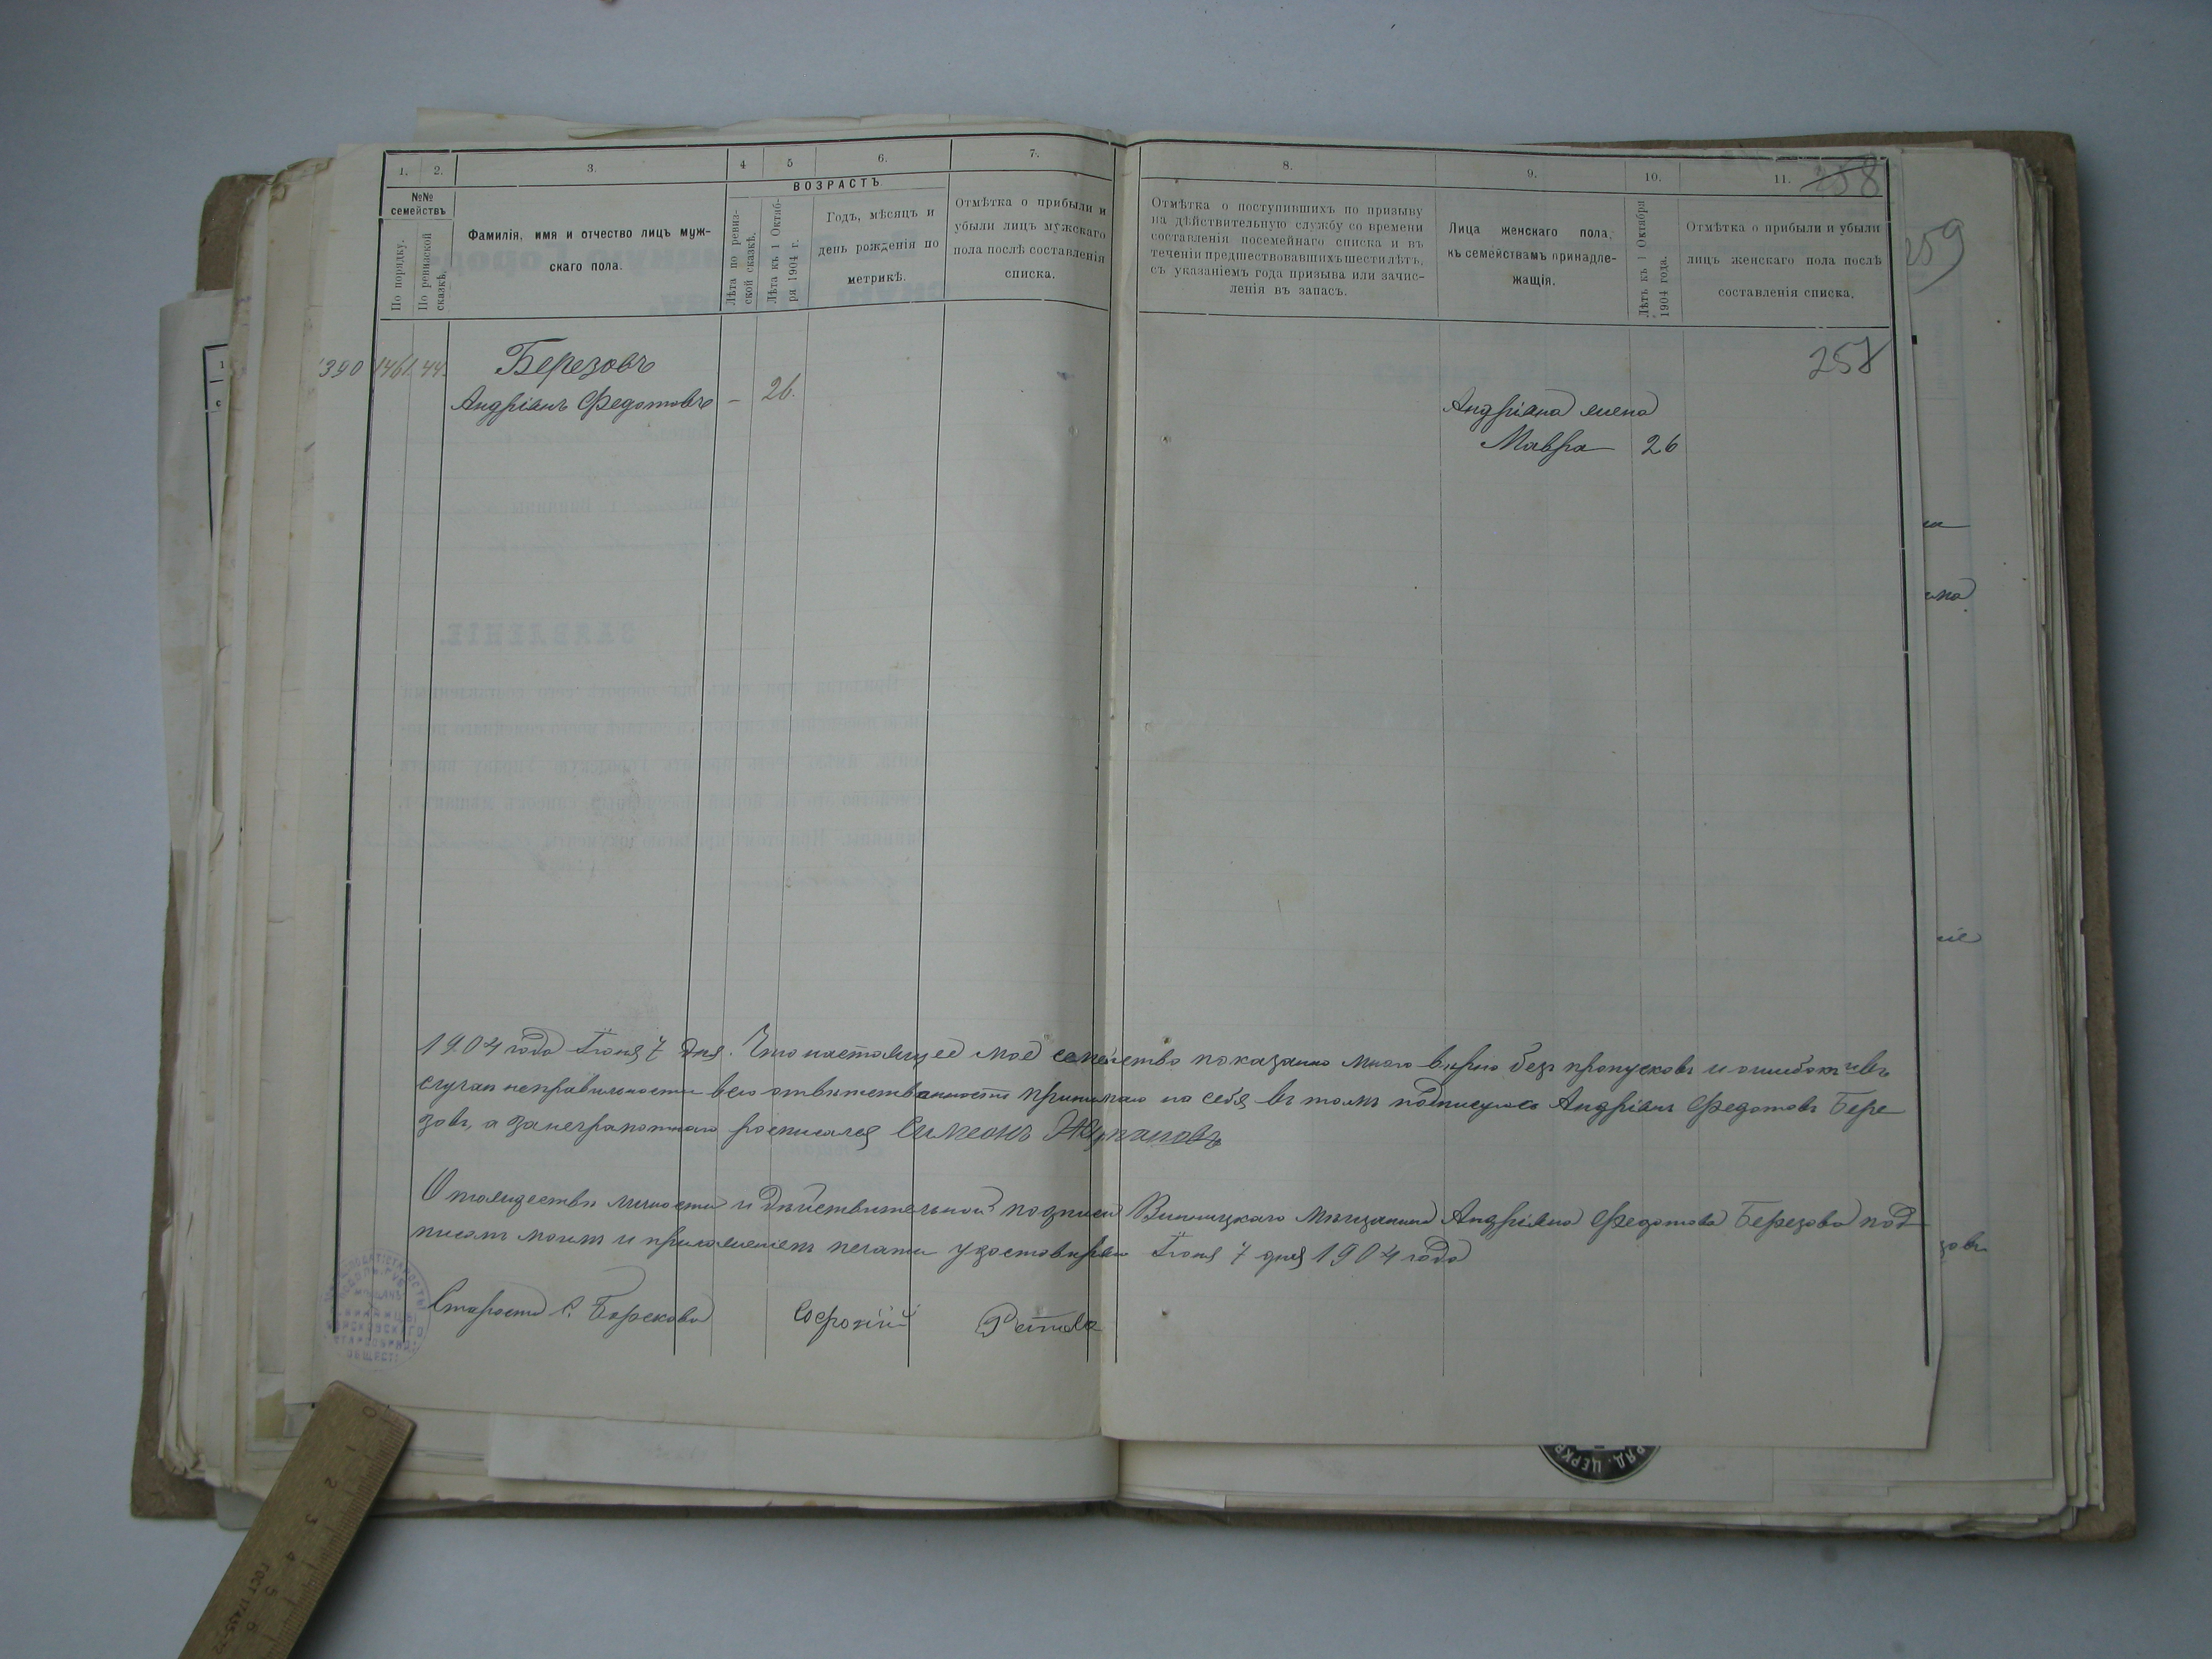 1. 2. 3. 4 5 6. 7.
№№ семействъ
По порядку.
По ревизской сказкѣ.
Фамилія, имя и отчество лицъ муж-
скаго пола.
ВОЗРАСТЪ
Лѣта по ревиз-
ской сказкѣ.
Лѣта къ 1 Октяб-
ря 1904 г.
Годъ, мѣсяцъ и
день рожденія по
метрикѣ.
Отмѣтка о прибыли и
убыли лицъ мужскаго
пола послѣ составленія
списка.
390 1461 44.
Березовъ
Андріанъ Федотовъ — 26.
8. 9. 10. 11. 258
Отмѣтка о поступившихъ по призыву
на дѣйствительную службу со времени
составленія посемейнаго списка и въ
теченіи предшествовавшихъ шести лѣтъ,
съ указаніемъ года призыва или зачис-
ленія въ запасъ.
Лица женскаго пола,
къ семействамъ принадле-
жащія.
Лѣтъ къ 1 Октября
1904 года.
Отмѣтка о прибыли и убыли
лицъ женскаго пола послѣ
составленія списка.
259
258
Андріана жена
Мавра 26
1904 года Іюня 7 дня. Что настоящее мое семейство показанно мною вѣрно безъ пропусковъ и ошибокъ и въ
случаи неправильности всю отвѣтственность принимаю на себя въ томъ подписуюсь Андріанъ Федотовъ Бере
зовъ, а за неграмотнаго росписался Симеонъ
О тождествѣ личности и дѣйствительной подписи Винницкаго мѣщанина Андріана Федотова Березова под
писомъ моимъ и приложеніемъ печати удостовѣряю Іюня 7 дня 1904 года
Староста с. Борскова Софроній
ОБЩЕСТ
РЯД. ЦЕРКВ
ГОСТ 17435-72
0 1 2 3 4 5 6